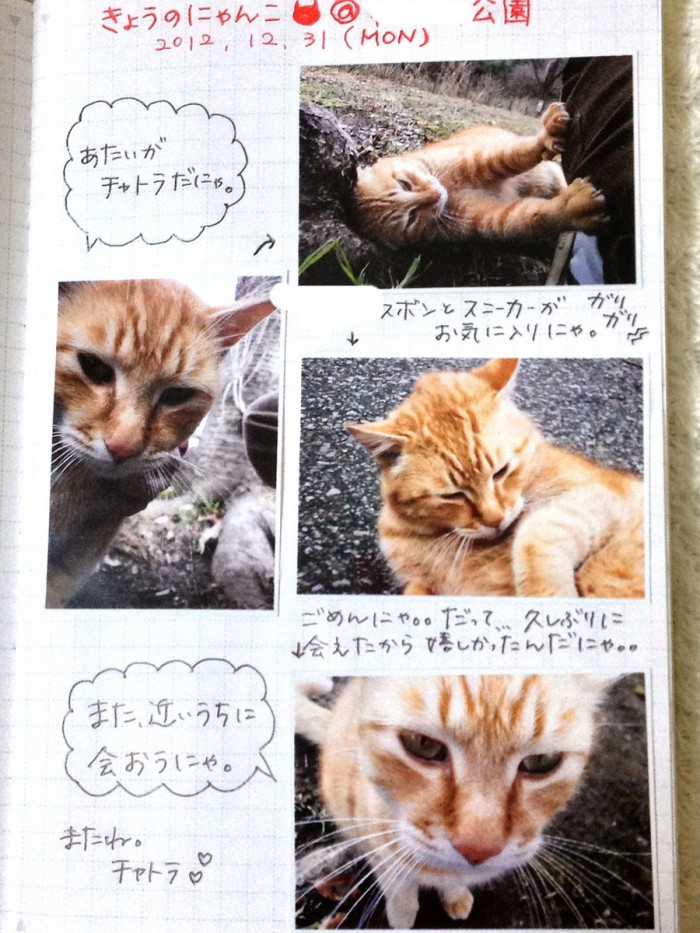 きょうのにゃんこ @ 公園
2012.12.31(MON)
あたいが
チャトラだにゃ。
ズボンとスニーカーが ガリ
ガリ
お気に入りにゃ。
ごめんにゃ。。だって… 久しぶりに
会えたから 嬉しかったんだにゃ。。
また、近いうちに
会おうにゃ。
またね。
チャトラ♡♡